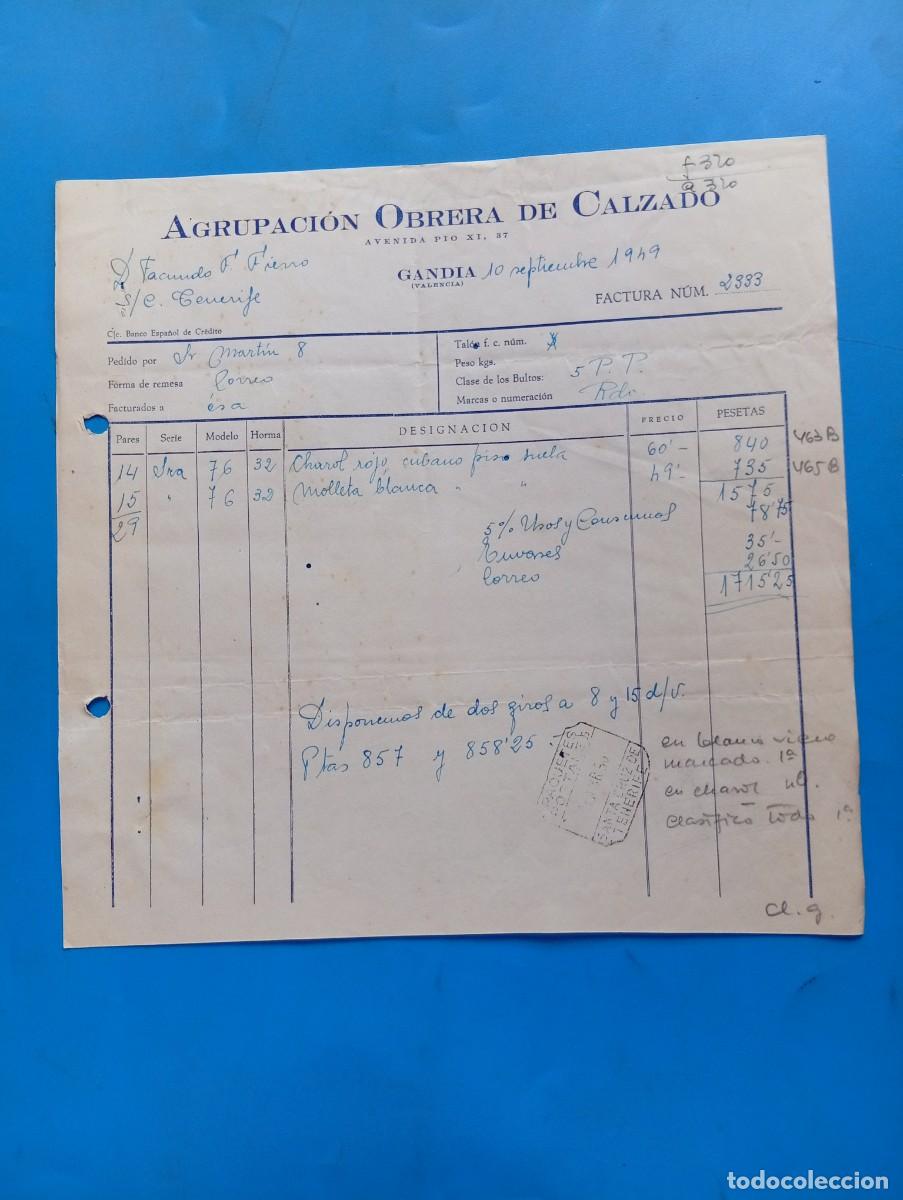 f 320
@ 320
AGRUPACIÓN OBRERA DE CALZADO
AVENIDA PIO XI, 37
D Facundo F. Fierro
S/C. Tenerife
GANDIA 10 septiembre 1949
(VALENCIA)
FACTURA NÚM. 2333
C/c. Banco Español de Crédito
Pedido por Sr Martín 8
Forma de remesa Correo
Facturados a ésa
Talón f. c. núm.
Peso kgs.
Clase de los Bultos: 5 P. P.
Marcas o numeración Rdo
Pares Serie Modelo Horma DESIGNACION PRECIO PESETAS
14 Sra 76 32 Charol rojo cubano piso suela 60'- 840 463 B
15 " 76 32 Molleta blanca " " 49'- 735 465 B
29 1575
5% Usos y Consumos 78'75
Envases 35'-
Correo 26'50
1715'25
Disponemos de dos giros a 8 y 15 d/v.
Ptas 857 y 858'25
PAQUETES
POSTALES
SANTA CRUZ DE
TENERIFE
en blanco viene
marcado. 1ª
en charol
clasifico todo 1ª
cl. g.
todocoleccion